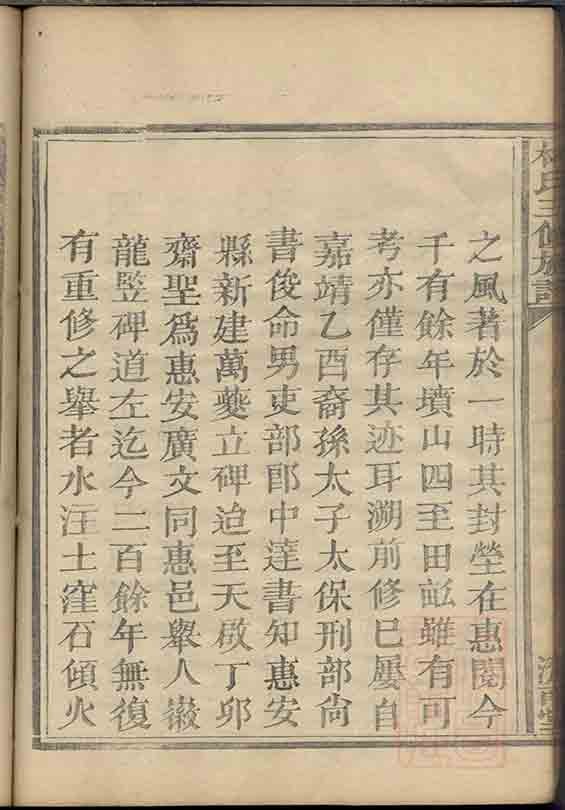 林氏三修族譜
之風著於一時其封塋在惠閱今
千有餘年墳山四至田畝雖有可
考亦僅存其迹耳溯前修已屢自
嘉靖乙酉裔孫太子太保刑部尙
書俊命男吏部郎中達書知惠安
縣新建萬夔立碑迨至天啟丁卯
齋聖爲惠安廣文同惠邑舉人嶽
龍竪碑道左迄今二百餘年無復
有重修之舉者水汪土窪石傾火